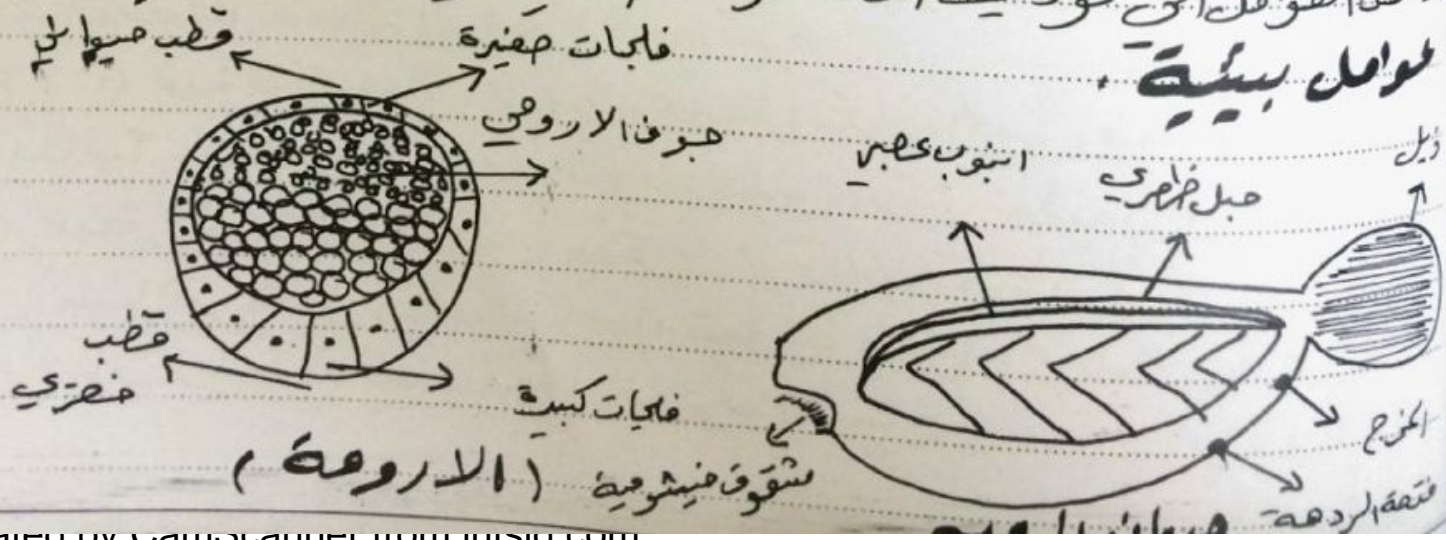 عوامل بيئية .
قطب حيواني
فلجات صغيرة
جوف الاروهي
قطب
خضري
فلجات كبيرة
( الاروهة )
انبوب عصبي
حبل ظهري
ذيل
المخرج
فتحة الردهة
شقوق خيشومية
ated by CamScanner from